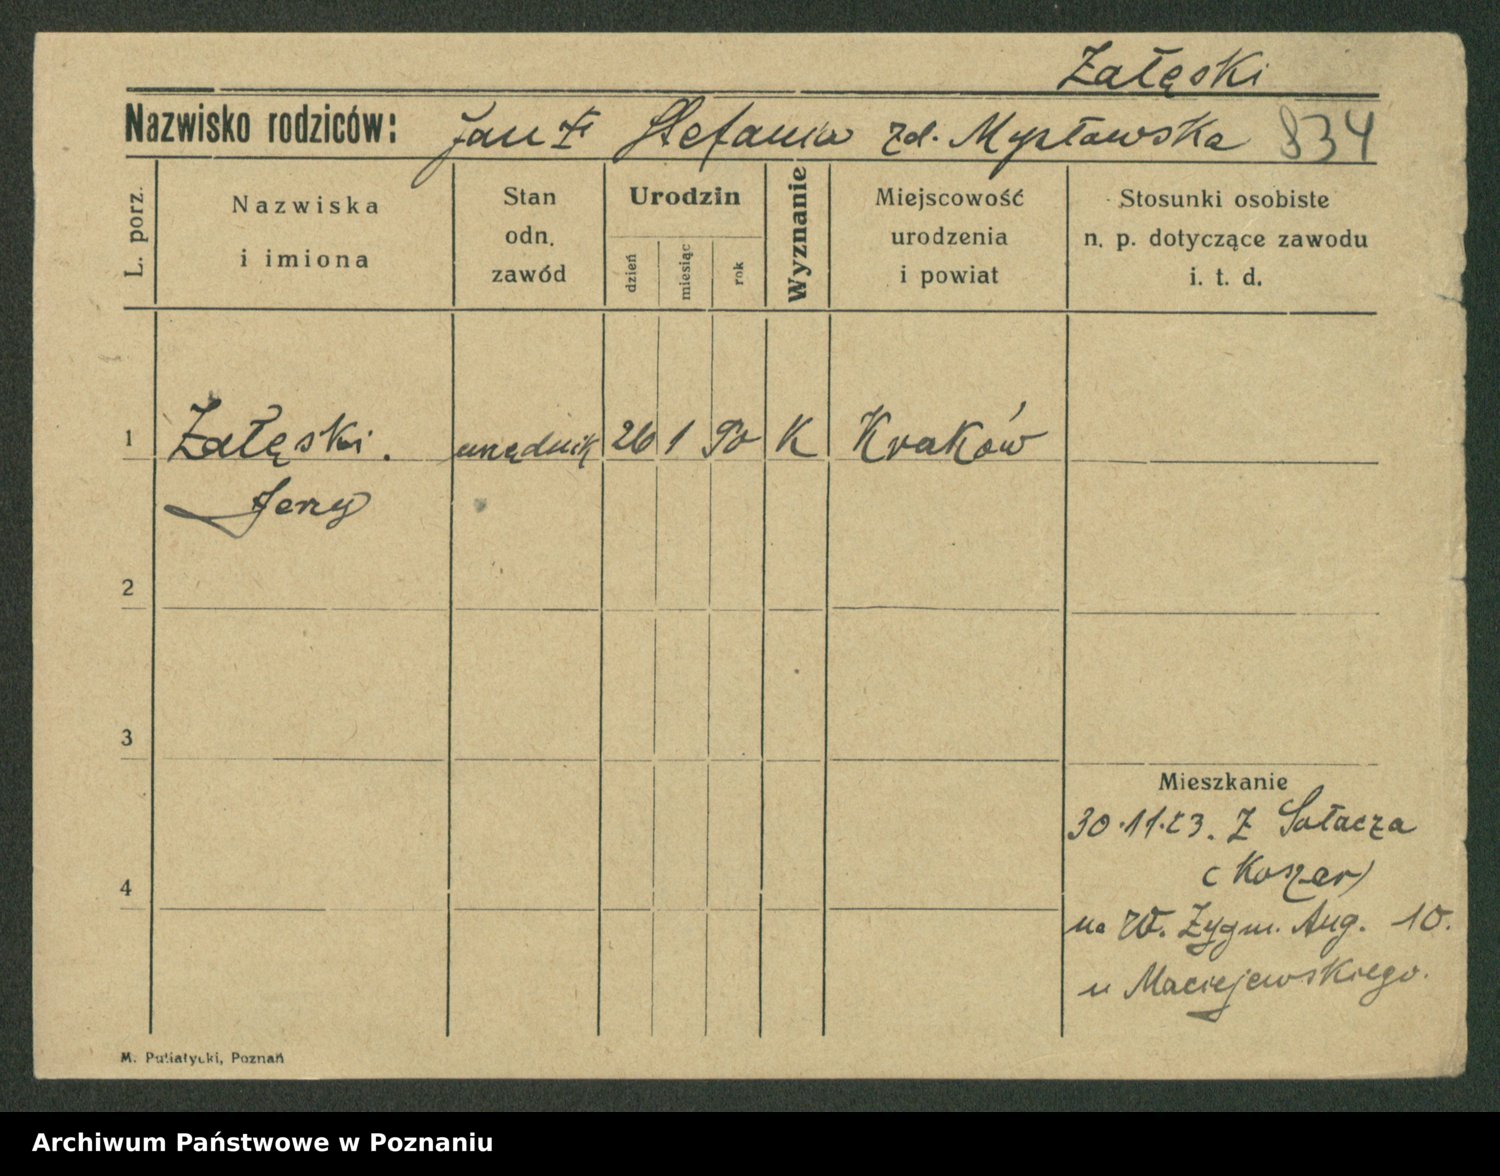 Załęski
Nazwisko rodziców: Jan i Stefania zd. Mysławska 834
L. porz.
Nazwiska
i imiona
Stan
odn.
zawód
Urodzin
dzień
miesiąc
rok
Wyznanie
Miejscowość
urodzenia
i powiat
Stosunki osobiste
n. p. dotyczące zawodu
i. t. d.
1 Załęski. urzędnik 26 1 90 K Kraków
Jerzy
2
3
4
Mieszkanie
30.11.23. Z Sołacza
(Koszar)
na W. Zygm. Aug. 10.
u Maciejewskiego.
M. Putiatycki, Poznań
Archiwum Państwowe w Poznaniu